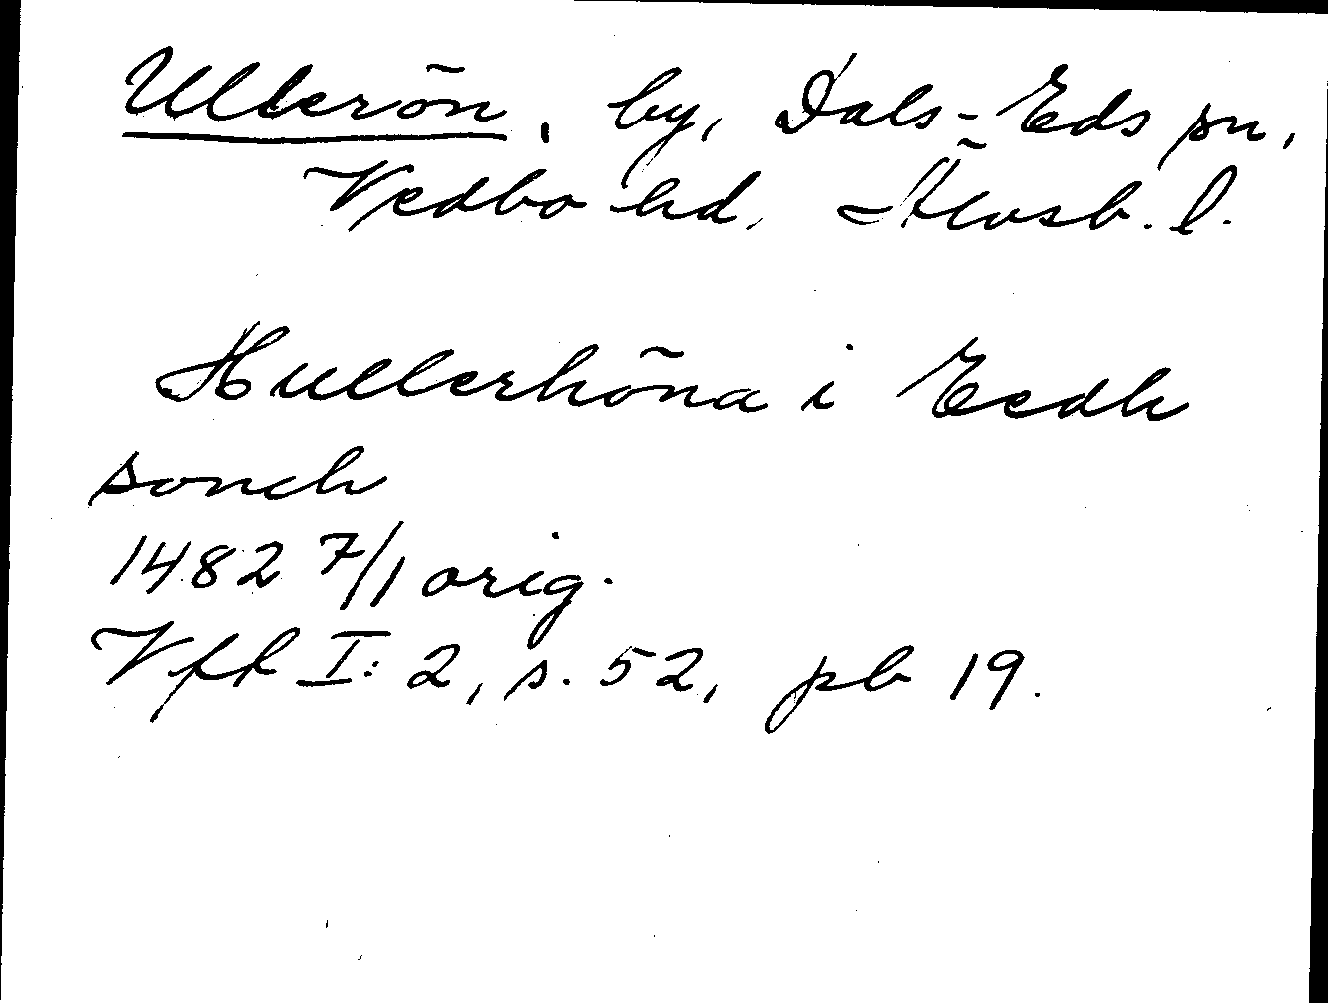 Ullerön, by, Dals-Eds sn,
Vedbo hd, Älvsb. l.
Hullerhöna i Eedh
sonch
1482 7/1 orig.
Vff I: 2, s. 52, pb 19.